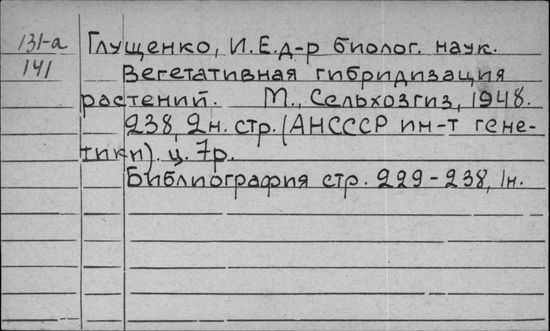 131-а Глущенко, И.Е. д-р биолог. наук.
141 Вегетативная гибридизация
растений. М., Сельхозгиз, 1948.
238, 2н. стр. (АНСССР ин-т гене-
тики). ц. 7р.
Библиография стр. 229-238, 1н.